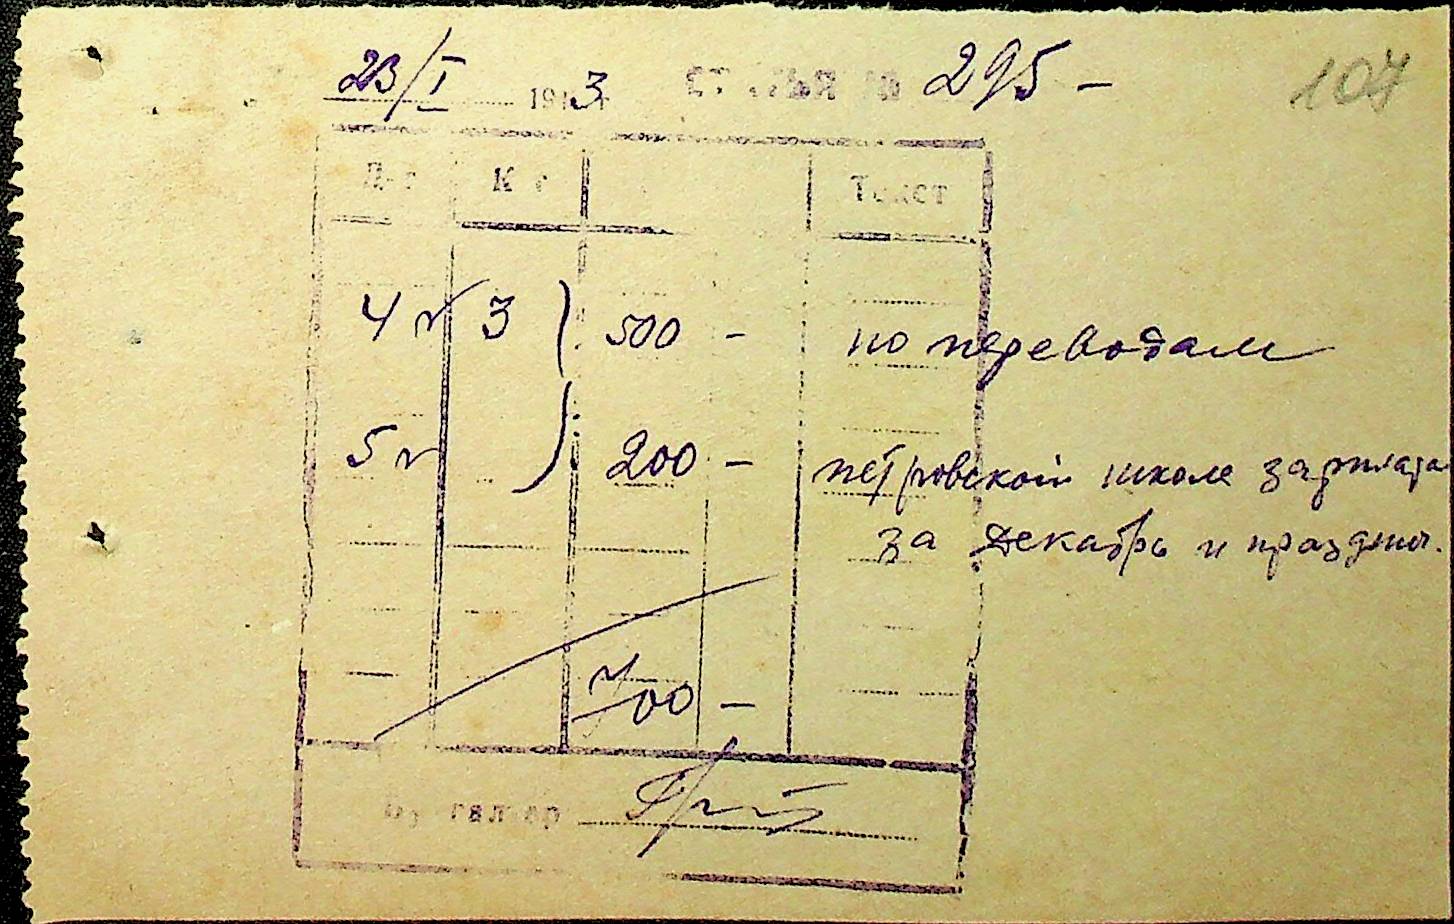 23/I 1943 г СТАТЬЯ № 295 –
107
Д-т К-т Текст
4 3 500 – по переводам
5 200 – петровской школе зарплата
за декабрь и праздн.
700 –
Бухгалтер